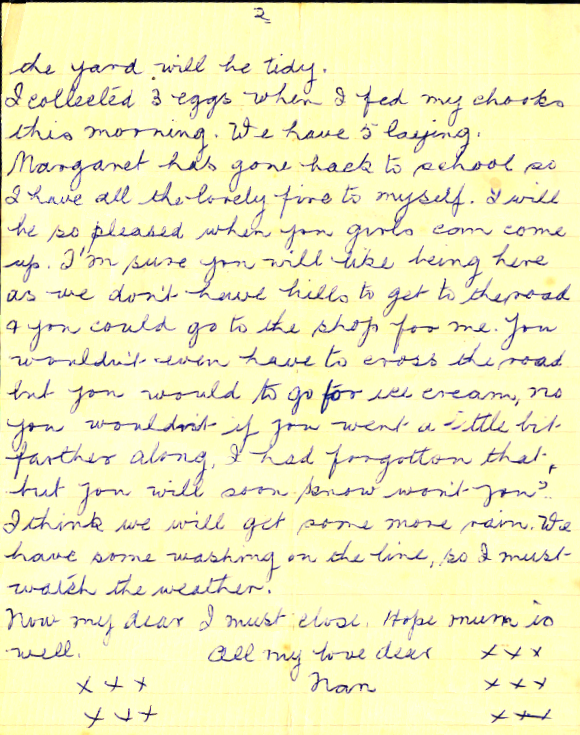 2
the yard will be tidy.
I collected 3 eggs when I fed my chooks
this morning. We have 5 laying.
Margaret has gone back to school so
I have all the lovely fire to myself. I will
be so pleased when you girls can come
up. I'm sure you will like being here
as we don't have hills to get to the road
& you could go to the shop for me. You
wouldn't even have to cross the road
but you would to go for ice cream, no
you wouldn't if you went a little bit
farther along, I had forgotton that,
but you will soon know won't you?
I think we will get some more rain. We
have some washing on the line, so I must
watch the weather.
Now my dear I must close. Hope mum is
well. All my love dear x x x
x x x Nan x x x
x x x x x x